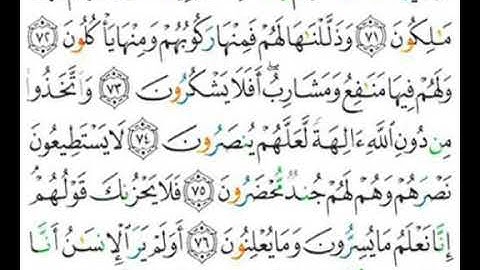 مَٰلِكُونَ ۝٧١ وَذَلَّلْنَٰهَا لَهُمْ فَمِنْهَا رَكُوبُهُمْ وَمِنْهَا يَأْكُلُونَ ۝٧٢
وَلَهُمْ فِيهَا مَنَٰفِعُ وَمَشَارِبُ ۖ أَفَلَا يَشْكُرُونَ ۝٧٣ وَٱتَّخَذُوا۟
مِن دُونِ ٱللَّهِ ءَالِهَةً لَّعَلَّهُمْ يُنصَرُونَ ۝٧٤ لَا يَسْتَطِيعُونَ
نَصْرَهُمْ وَهُمْ لَهُمْ جُندٌ مُّحْضَرُونَ ۝٧٥ فَلَا يَحْزُنكَ قَوْلُهُمْ
إِنَّا نَعْلَمُ مَا يُسِرُّونَ وَمَا يُعْلِنُونَ ۝٧٦ أَوَلَمْ يَرَ ٱلْإِنسَٰنُ أَنَّا